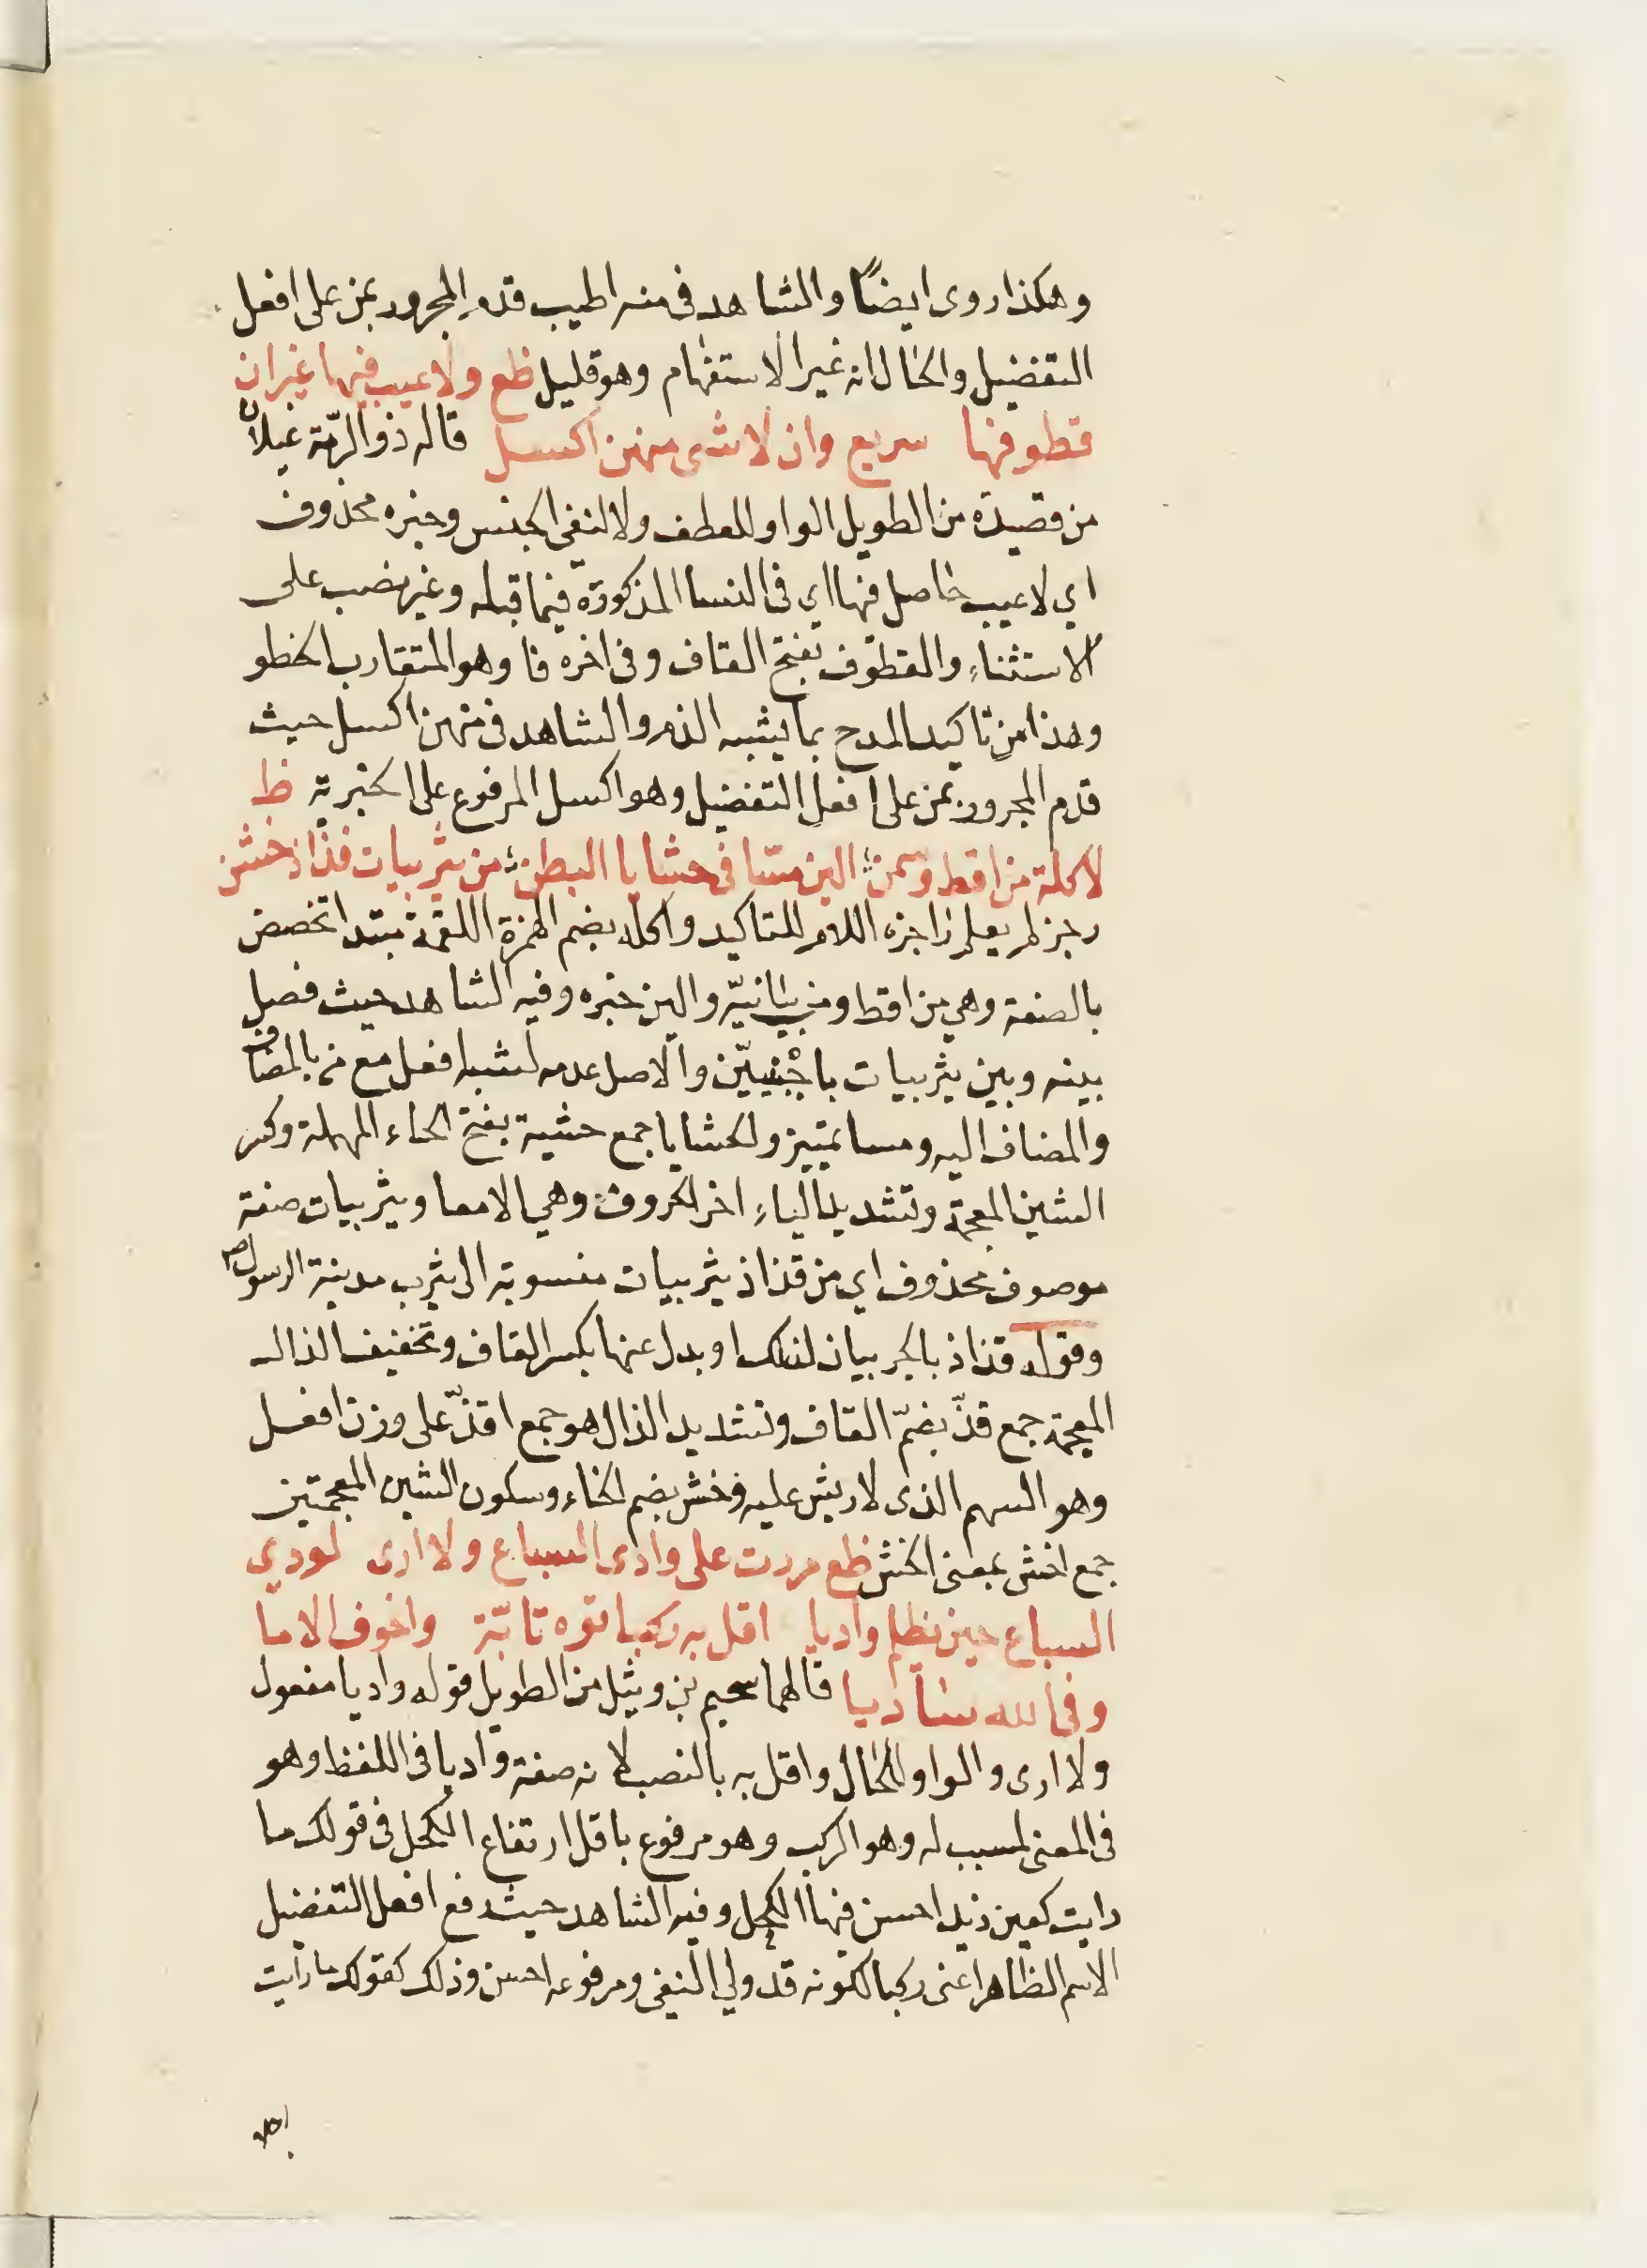 وهكذا روى ايضًا والشاهد فى منه اطيب قدم المجرور بمن على افعل
التفضيل والحال انه غير الاستفهام وهو قليل ظع ولا عيب فيها غير ان
قطوفها سريع وان لا شى منهن اكسل قاله ذو الرمّة غيلان
من قصيدة من الطويل الواو للعطف ولا لنفى الجنس وخبره محذوف
اي لا عيب حاصل فيها اي فى النسا المذكورة فيما قبله وغير نصب على
الاستثناء والقطوف بفتح القاف وفى اخره فا وهو المتقارب الخطو
وهذا من تاكيد المدح بما يشبه الذم والشاهد فى منهن اكسل حيث
قدم المجرور بمن على افعل التفضيل وهو اكسل المرفوع على الخبرية ظ
لاكلة من اقط وسمن الين مسا فى حشايا البطن من يثربيات قذاذ خشن
رجز لم يعلم راجزه اللام للتاكيد واكله بضم الهمزة اللقمة مبتدا تخصص
بالصفة وهي من اقط ومن بيانيّه والين خبره وفيه الشاهد حيث فصل
بينه وبين يثربيات باجنبيّين والاصل عدمه لشبه افعل مع من بالمضاف
والمضاف اليه ومسا تمييز والحشايا جمع حشية بفتح الحاء المهملة وكسر
الشين المعجمة وتشديد الياء اخر الحروف وهي الامعا ويثربيات صفة
موصوف محذوف اي من قذاذ يثربيات منسوبة الى يثرب مدينة الرسول صم
وقوله قذاذ بالجر بيان لذلك او بدل عنها بكسر القاف وتخفيف الذال
المعجمة جمع قذّ بضمّ القاف وتشديد الذال هو جمع اقذّ على وزن افعل
وهو السهم الذى لا ريش عليه وخشن بضم الخاء وسكون الشين المعجمتين
جمع اخشن بمعنى الخشن ظع مررت على وادى السباع ولا ارى لودي
السباع حين يظلم واديا اقل به ركب اتوه تائيّة واخوف الا ما
وقى الله ساديا قالهما سحيم بن وثيل من الطويل قوله واديا مفعول
ولا ارى والواو للحال واقل به بالنصب لانه صفة واديا فى اللفظ وهو
فى المعنى لمسبب له وهو الركب وهو مرفوع باقل ارتفاع الكحل فى قولك ما
رايت كعين زيد احسن فيها الكحل وفيه الشاهد حيث رفع افعل التفضيل
الاسم الظاهر اعنى ركبا لكونه قد ولي النفى ومرفوعه احسن وذلك كقولك ما رايت